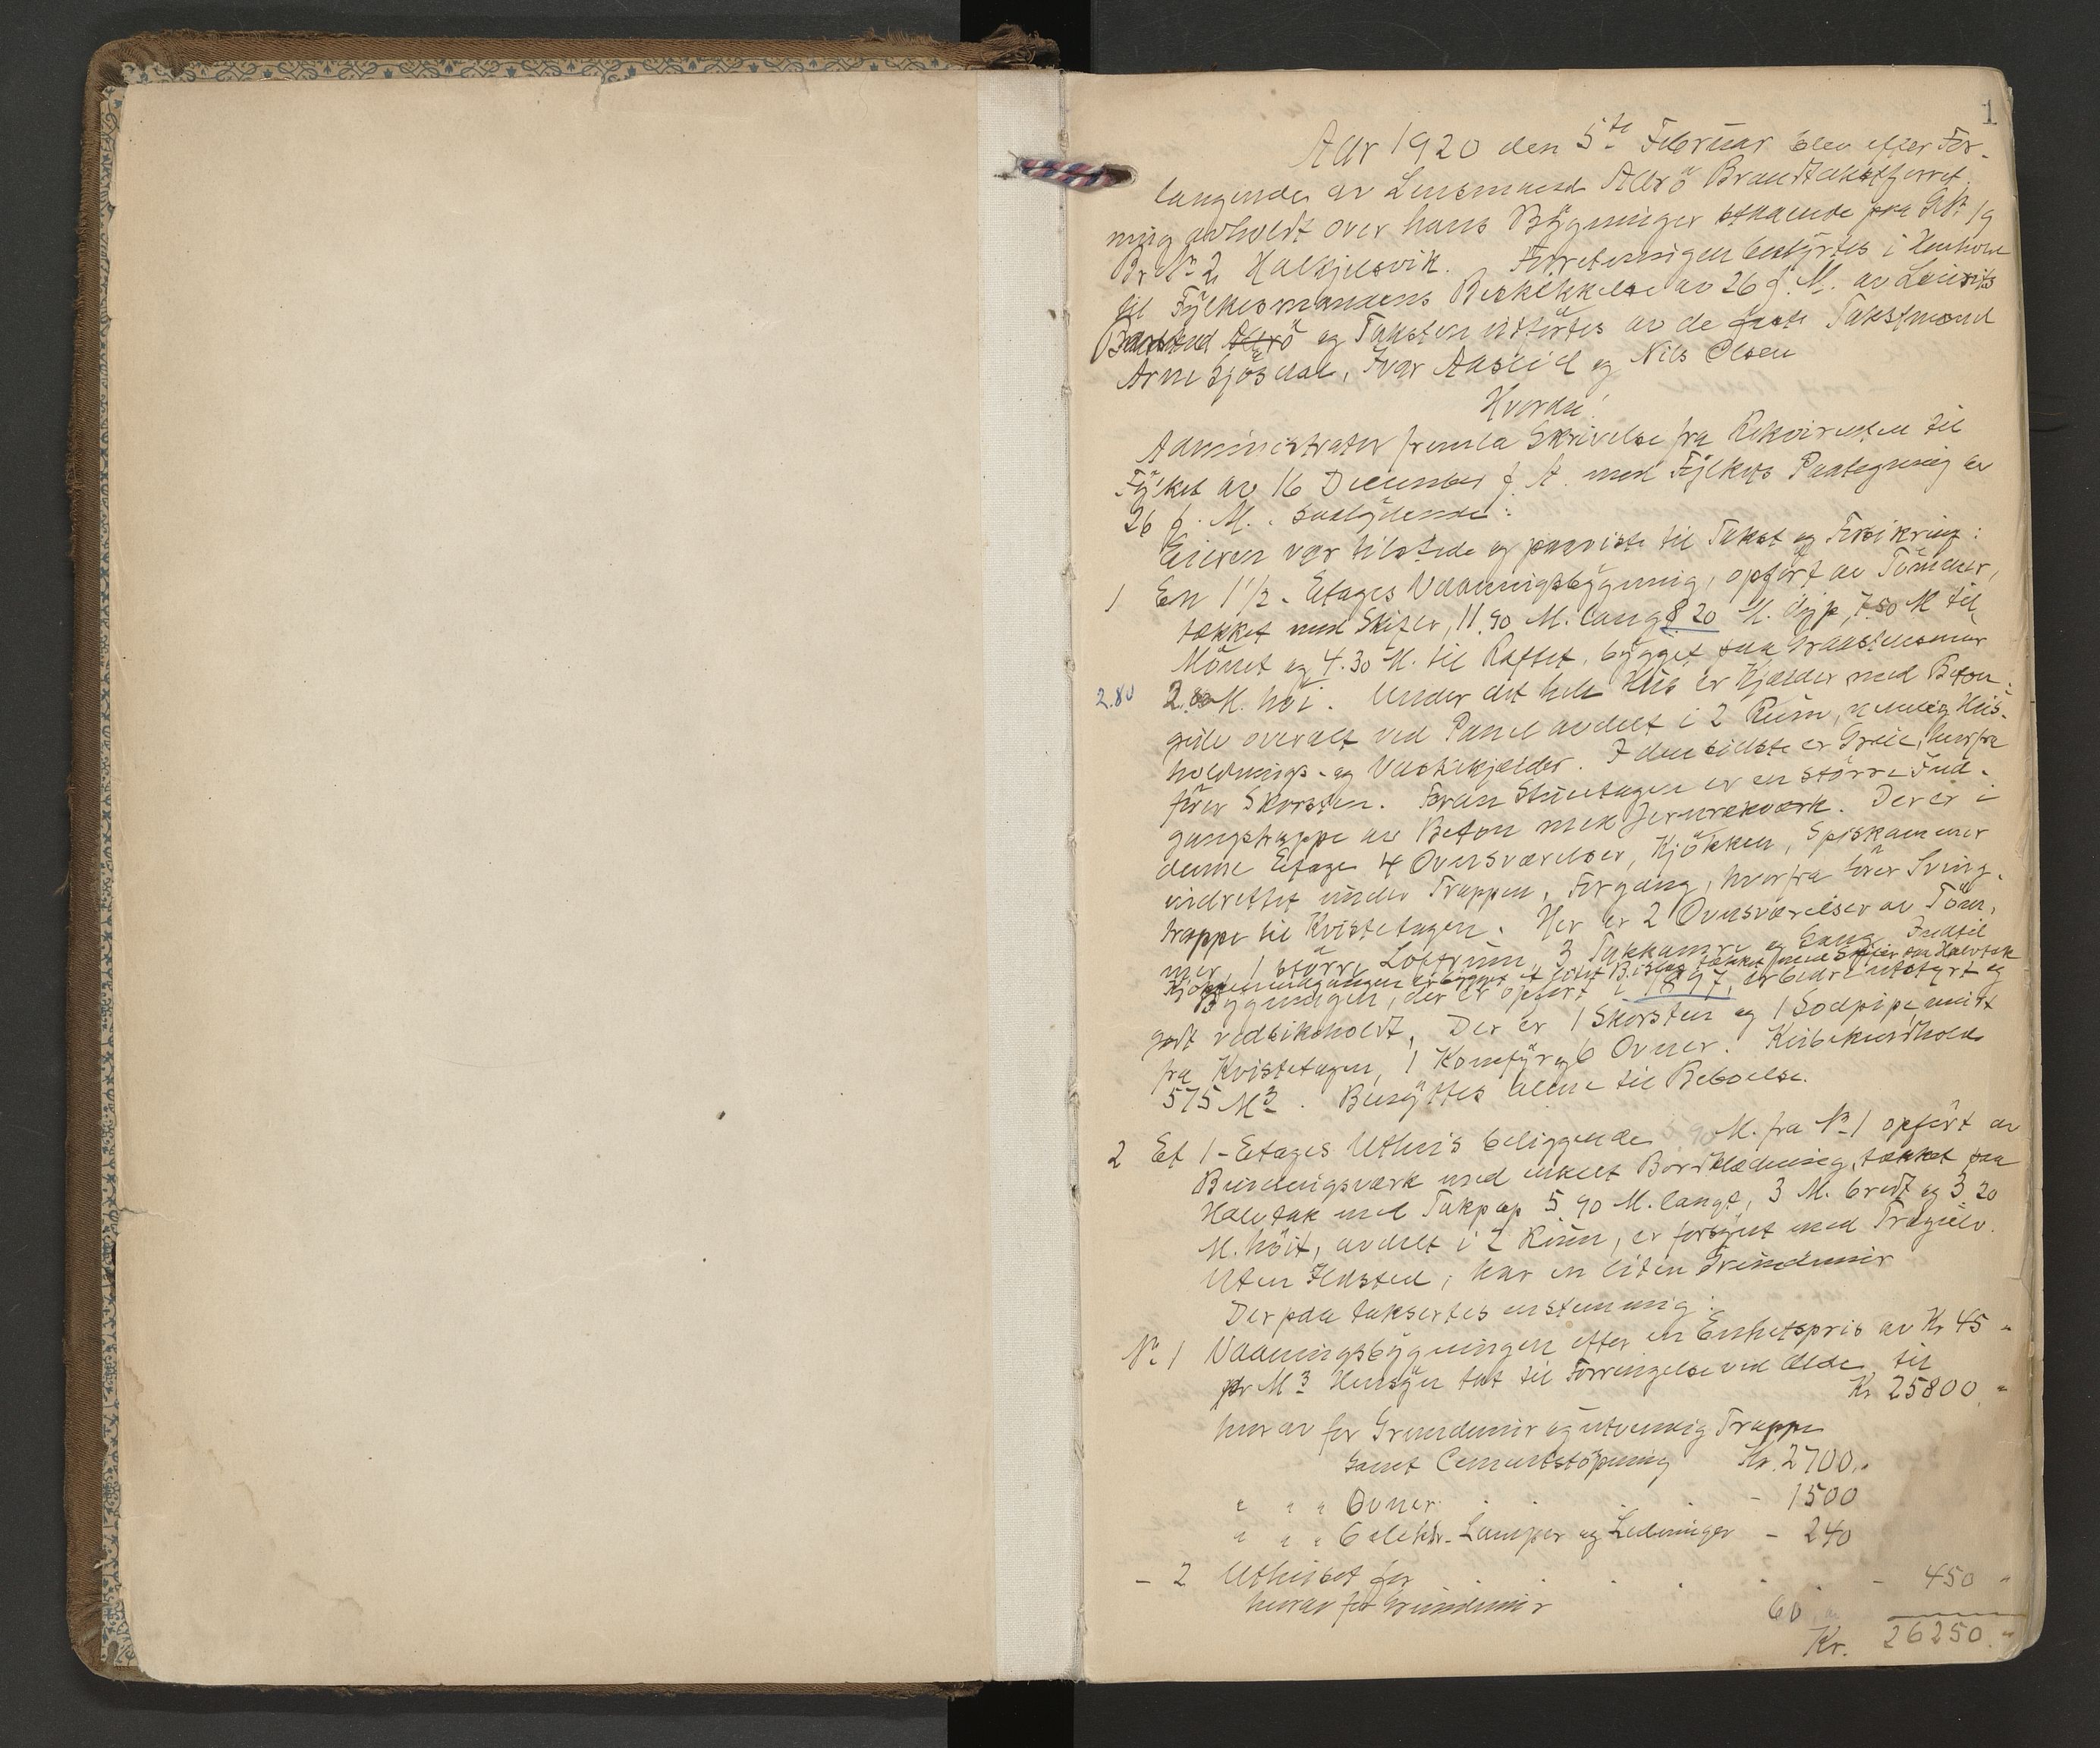 1
Aar 1920 den 5te Februar blev efter For-
langende av Lensmand Aarö Brandtakstforret-
ning avholdt over hans Bygninger staaende paa GNr 19
Br Nr 2 Halkjelsvik. Forretningen bestyrtes i Henhold
til Fylkesmandens Beskikkelse av 26 f. M. av Laurits
Barstad og Taksten utførtes av de faste Takstmænd
Arne Sjösdal, Ivar Aaseid og Nils Olsen
Hvorda!
Administrator fremla Skrivelse fra Rekvirenten til
Fylket av 16 December f. A. med Fylkets Paategning av
26 f. M. saalydende:
Eieren var tilstede og paaviste til Takst og Forsikring:
1 En 1 1/2 - Etages Vaaningsbygning, opført av Tømmer,
tækket med Skifer, 11.90 M. lang 8.20 M. dyp, 7.50 M til
Mönet og 4.30 M. til Raftet, bygget paa Graastensmur
2.80 2.80 M. høi. Under det hele Hus er Kjælder med Beton-
gulv overalt ved Panel avdelt i 2 Rum, nemlig Hus-
holdnings- og Vaskekjælder. I den sidste er Grue, hvorfra
fører Skorsten. Foran Stuetagen er en større Ind-
gangstrappe av Beton med Jernrekværk. Der er i
denne Etage 4 Ovnsværelser, Kjøkken, Spiskammer
indrettet under Trappen, Forgang, hvorfra fører Sving-
trappe til Kvistetagen. Her er 2 Ovnsværelser av Tøm-
mer, 1 større Loftrum, 3 Takkamre og Gang. Indtil
Kjøkkenindgangen er bygget et lidet Bislag tækket med Skifer paa Halvtak
Bygningen, der er opført i 1897, er bedre utstyrt og
godt vedlikeholdt. Der er 1 Skorsten og 1 Sodpipe murt
fra Kvistetagen, 1 Komfyr og 6 Ovner. Kubikindhold
575 M3. Benyttes alene til Beboelse.
2 Et 1-Etages Uthus beliggende 6.90 M. fra Nr 1 opført av
Bindingsværk med enkelt Bordklædning, tækket paa
Halvtak med Takpap 5.90 M. langt, 3 M. bredt og 3.20
M. høit, avdelt i 2 Rum, er forsynt med Trægulv.
Uten Ildsted, har en liten Grundmur
Derpaa taksertes enstemmig:
Nr 1 Vaaningsbygningen efter en Enhetspris av Kr 45 -
pr M3 Hensyn tat til Forringelse ved Ælde til
Kr 25800. -
hvorav for Grundmur og utvendig Trappe
samt Cementstøpning Kr. 2700.-
" " " Ovner - 1500
" " " 6 elektr. Lamper og Ledninger - 240
- 2 Uthuset for - 450 "
hvorav for Grundmur 60
Kr. 26250. -